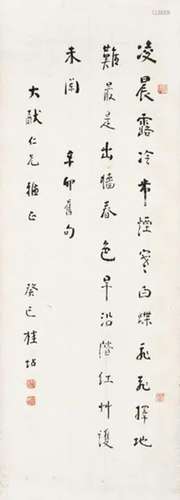 凌晨露冷帶煙寒白蝶飛飛擇地
難最是出墻春色早沿階紅艸護
朱闌 辛卯舊句
大猷仁兄雅正
癸巳桂坫